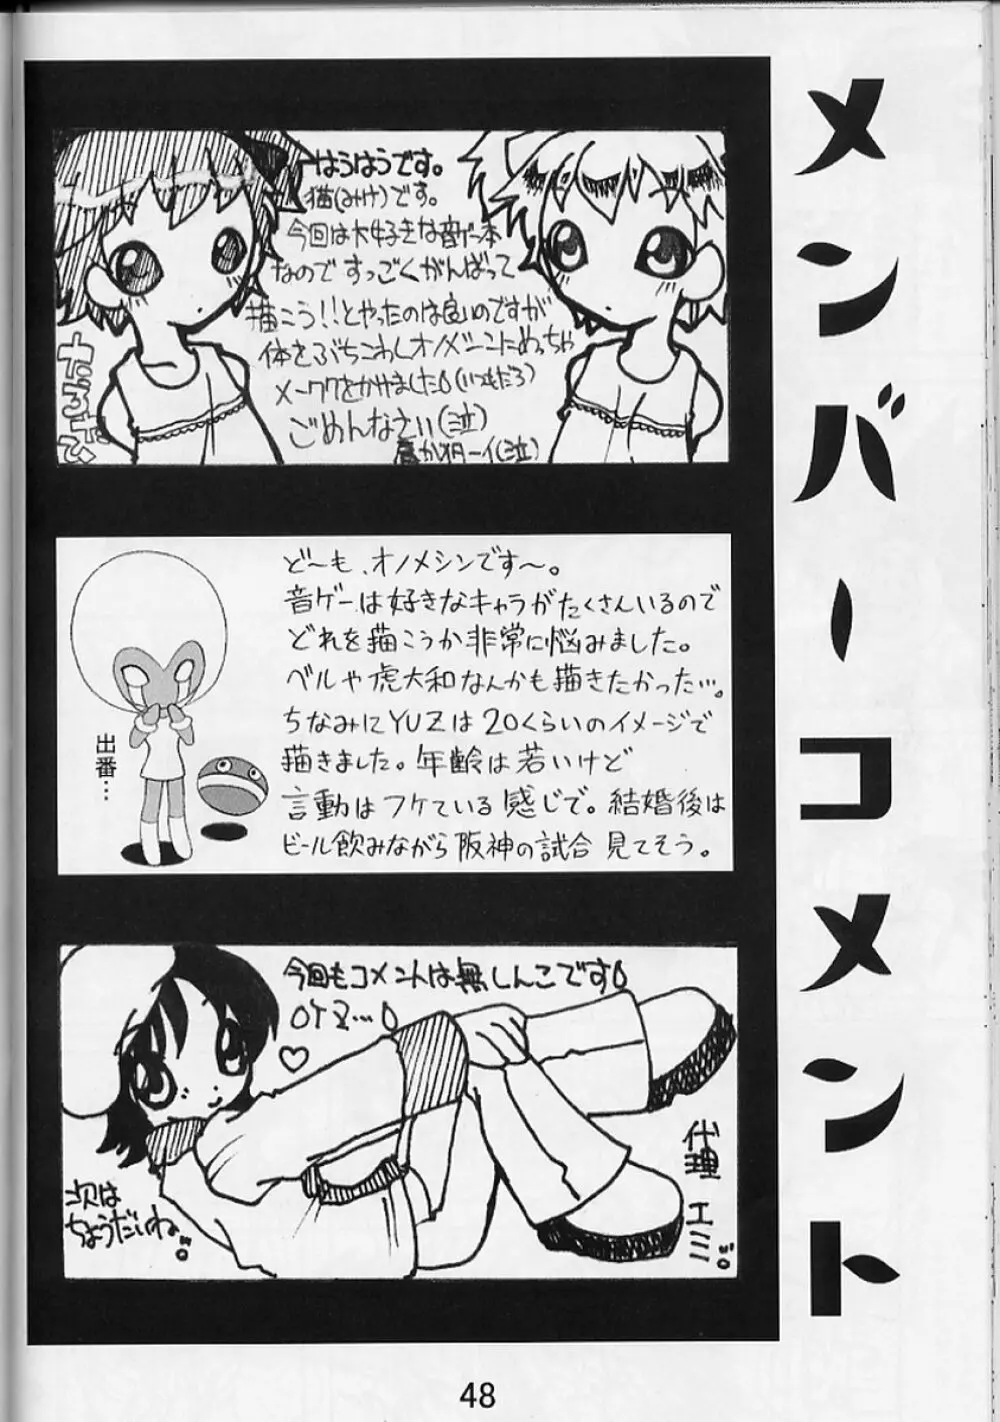 メンバーコメント
はうはうです。
猫(みけ)です。
今回は大好きな音ゲー本
なので すっごくがんばって
描こう!!とやったのは良いのですが
体をぶちこわしオノメシンにめっちゃ
メーワクをかけました(いつもだろ)
ごめんなさい(泣)
ど〜も、オノメシンです〜。
音ゲーは好きなキャラがたくさんいるので
どれを描こうか非常に悩みました。
ベルや虎大和なんかも描きたかった…。
ちなみにYUZは20くらいのイメージで
描きました。年齢は若いけど
言動はフケている感じで。結婚後は
ビール飲みながら阪神の試合 見てそう。
出番…
今回もコメントは無しんこです
♡
代理 エミ
次は
ちょうだいね
48